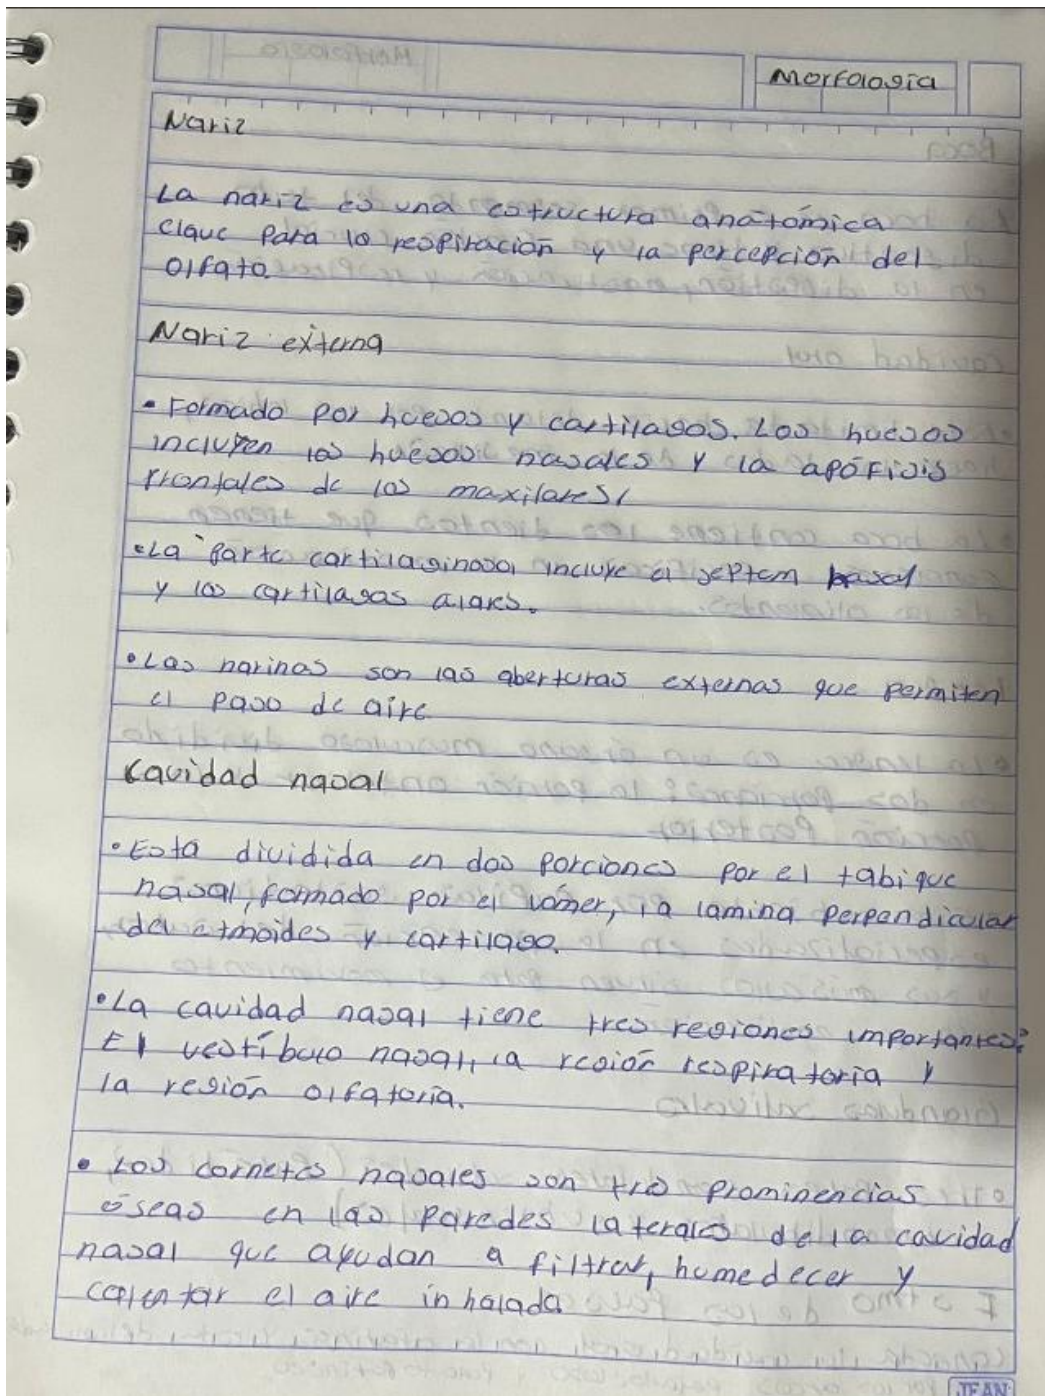 Morfología
Nariz
La nariz es una estructura anatómica
clave para la respiración y la percepción del
olfato.
Nariz externa
• Formado por huesos y cartilagos. Los huesos
incluyen los huesos nasales y la apófisis
frontales de los maxilares,
• La parte cartilaginosa incluye el septem nasal
y los cartilagas alares.
• Las narinas son las aberturas externas que permiten
el paso de aire
Cavidad nasal
• Está dividida en dos porciones por el tabique
nasal, formado por el vómer, la lamina perpendicular
del etmoides y cartilago.
• La cavidad nasal tiene tres regiones importantes:
El vestíbulo nasal, la región respiratoria y
la región olfatoria.
• Los cornetes nasales son tres prominencias
óseas en las paredes laterales de la cavidad
nasal que ayudan a filtrar, humedecer y
calentar el aire inhalada
JEAN